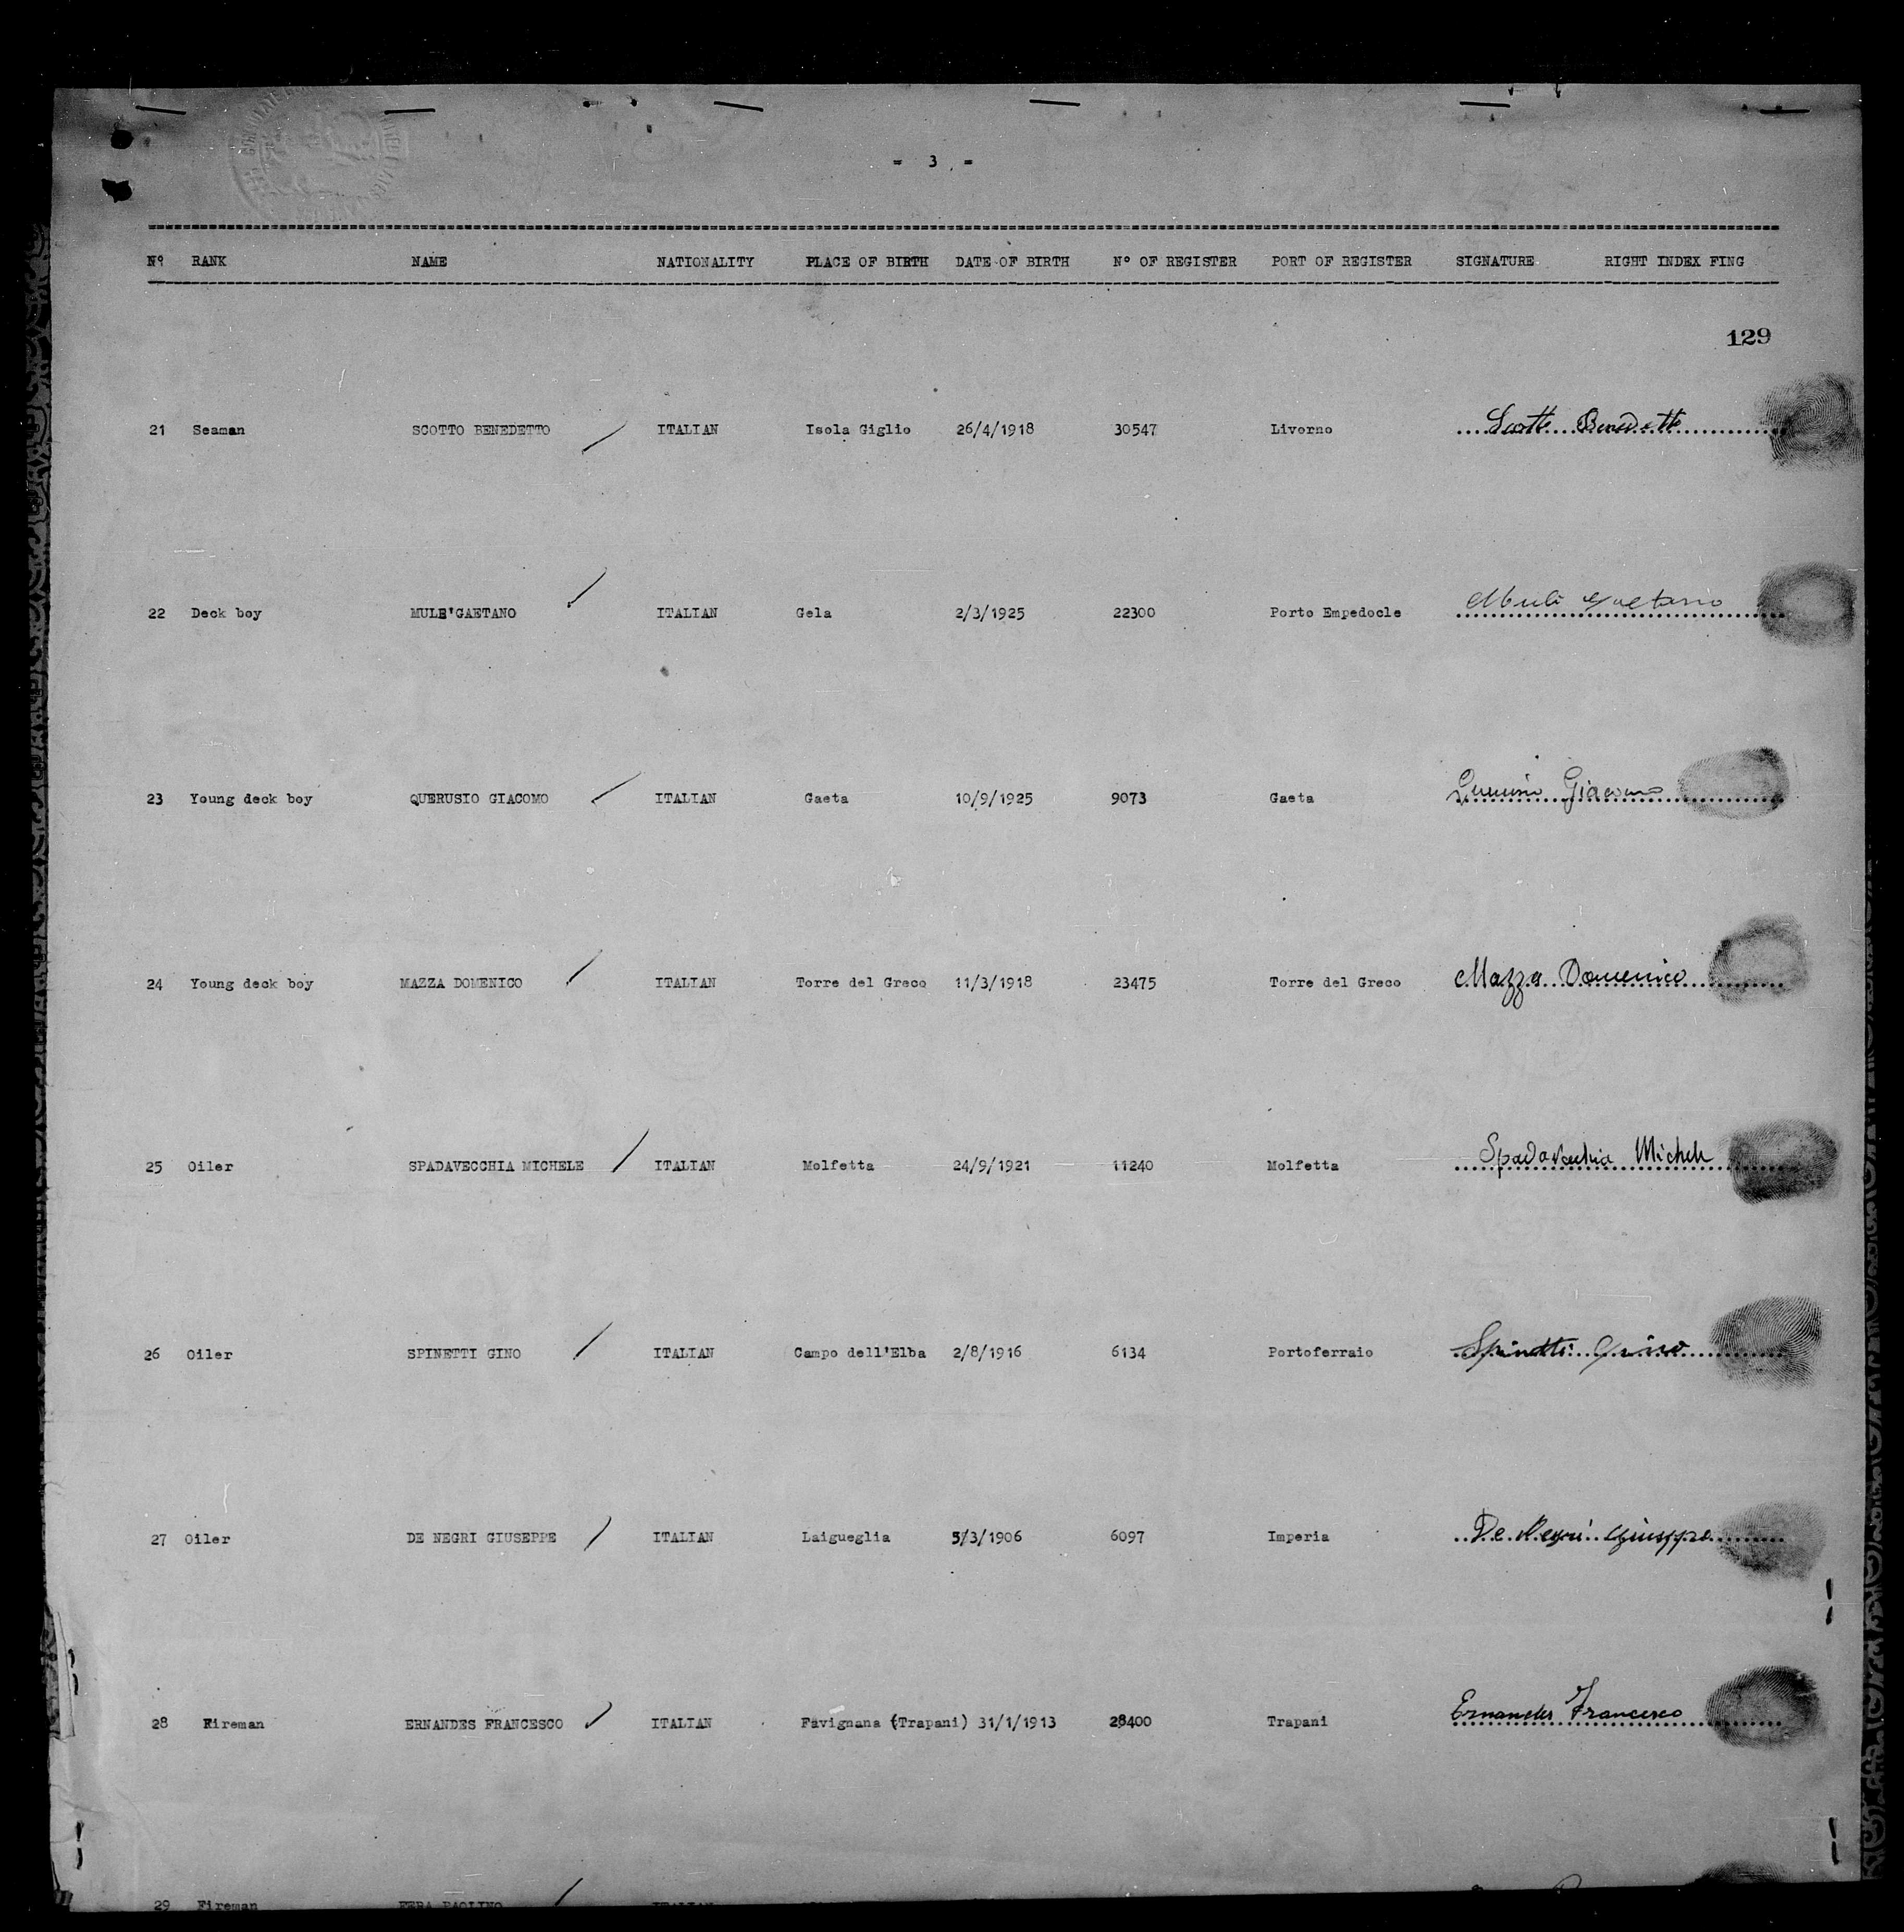 = 3 =
Nº RANK NAME NATIONALITY PLACE OF BIRTH DATE OF BIRTH Nº OF REGISTER PORT OF REGISTER SIGNATURE RIGHT INDEX FING
129
21 Seaman SCOTTO BENEDETTO ITALIAN Isola Giglio 26/4/1918 30547 Livorno Scotto Benedetto
22 Deck boy MULE'GAETANO ITALIAN Gela 2/3/1925 22300 Porto Empedocle Mulè Gaetano
23 Young deck boy QUERUSIO GIACOMO ITALIAN Gaeta 10/9/1925 9073 Gaeta Giacomo
24 Young deck boy MAZZA DOMENICO ITALIAN Torre del Greco 11/3/1918 23475 Torre del Greco Mazza Domenico
25 Oiler SPADAVECCHIA MICHELE ITALIAN Molfetta 24/9/1921 11240 Molfetta Spadavecchia Michele
26 Oiler SPINETTI GINO ITALIAN Campo dell'Elba 2/8/1916 6134 Portoferraio Spinetti Gino
27 Oiler DE NEGRI GIUSEPPE ITALIAN Laigueglia 5/3/1906 6097 Imperia De Negri Giuseppe
28 Fireman ERNANDES FRANCESCO ITALIAN Favignana (Trapani) 31/1/1913 28400 Trapani Ernandes Francesco
29 Fireman PAOLINO ITALIAN